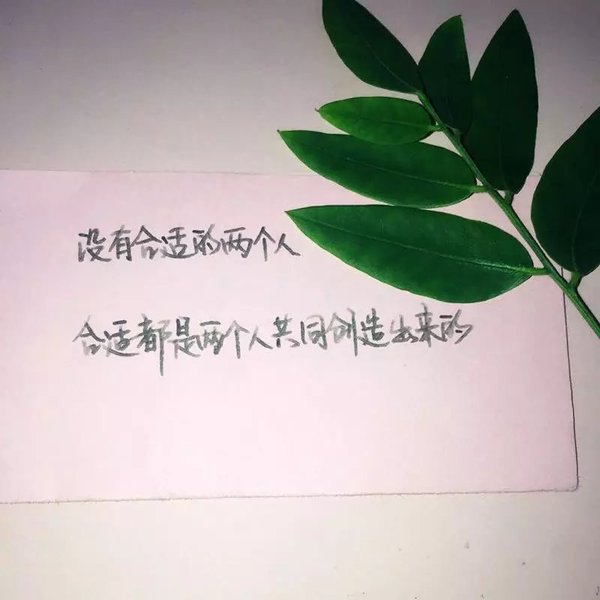 没有合适的两个人
合适都是两个人共同创造出来的